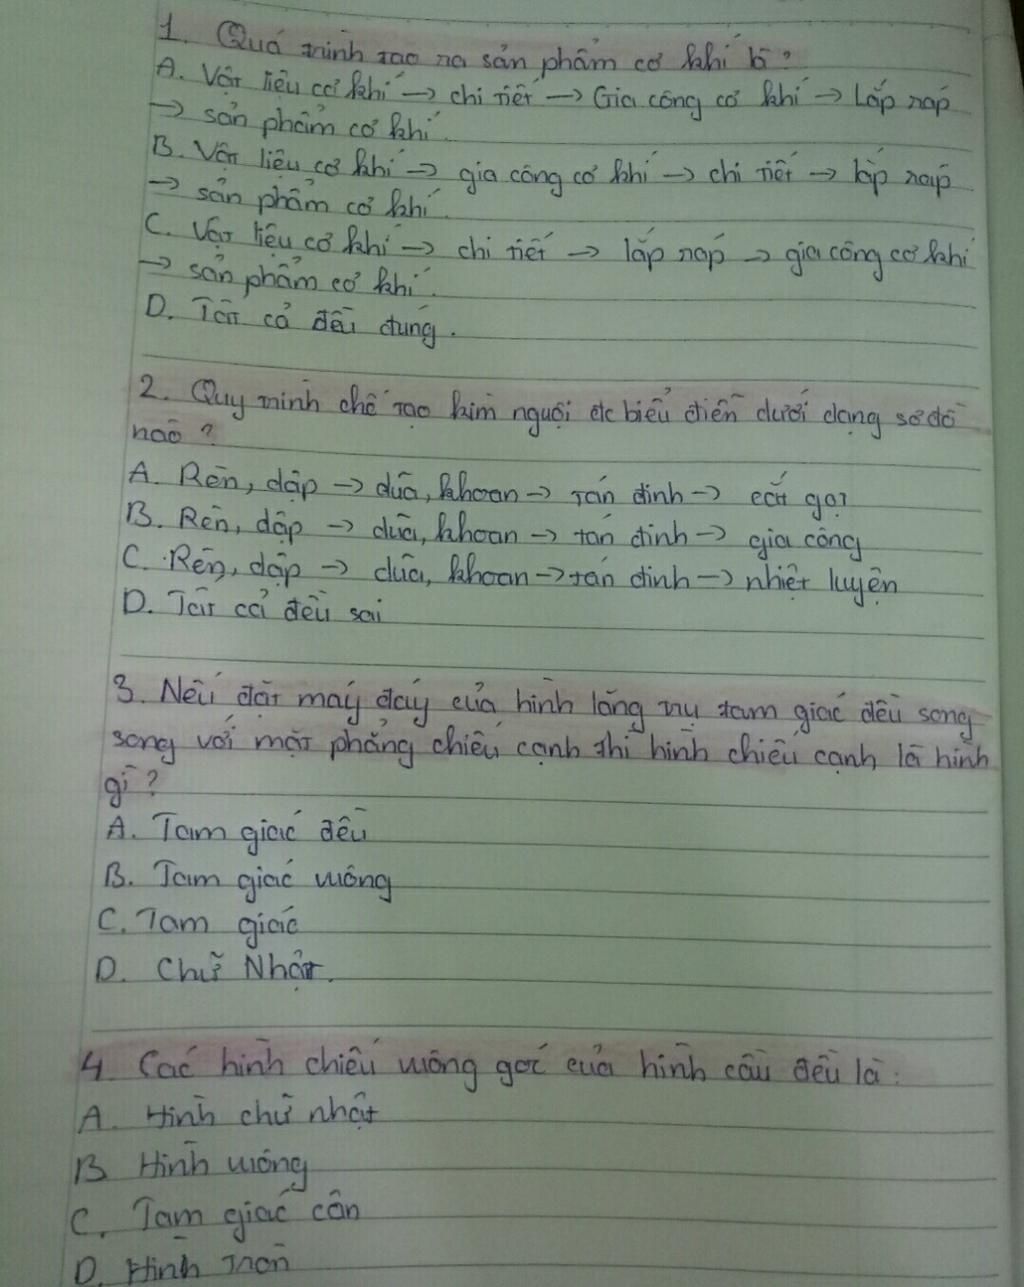 1. Quá trình tạo ra sản phẩm cơ khí là?
A. Vật liệu cơ khí → chi tiết → Gia công cơ khí → Lắp ráp
→ sản phẩm cơ khí.
B. Vật liệu cơ khí → gia công cơ khí → chi tiết → lắp ráp
→ sản phẩm cơ khí.
C. Vật liệu cơ khí → chi tiết → lắp ráp → gia công cơ khí
→ sản phẩm cơ khí.
D. Tất cả đều đúng.
2. Quy trình chế tạo kìm nguội đc biểu diễn dưới dạng sơ đồ
nào?
A. Rèn, dập → dũa, khoan → tán đinh → cắt gọt
B. Rèn, dập → dũa, khoan → tán đinh → gia công
C. Rèn, dập → dũa, khoan → tán đinh → nhiệt luyện
D. Tất cả đều sai
3. Nếu đặt mặt đáy của hình lăng trụ tam giác đều song
song với mặt phẳng chiếu cạnh thì hình chiếu cạnh là hình
gì?
A. Tam giác đều
B. Tam giác vuông
C. Tam giác
D. Chữ Nhật.
4. Các hình chiếu vuông góc của hình cầu đều là:
A. Hình chữ nhật
B Hình vuông
C. Tam giác cân
D. Hình tròn